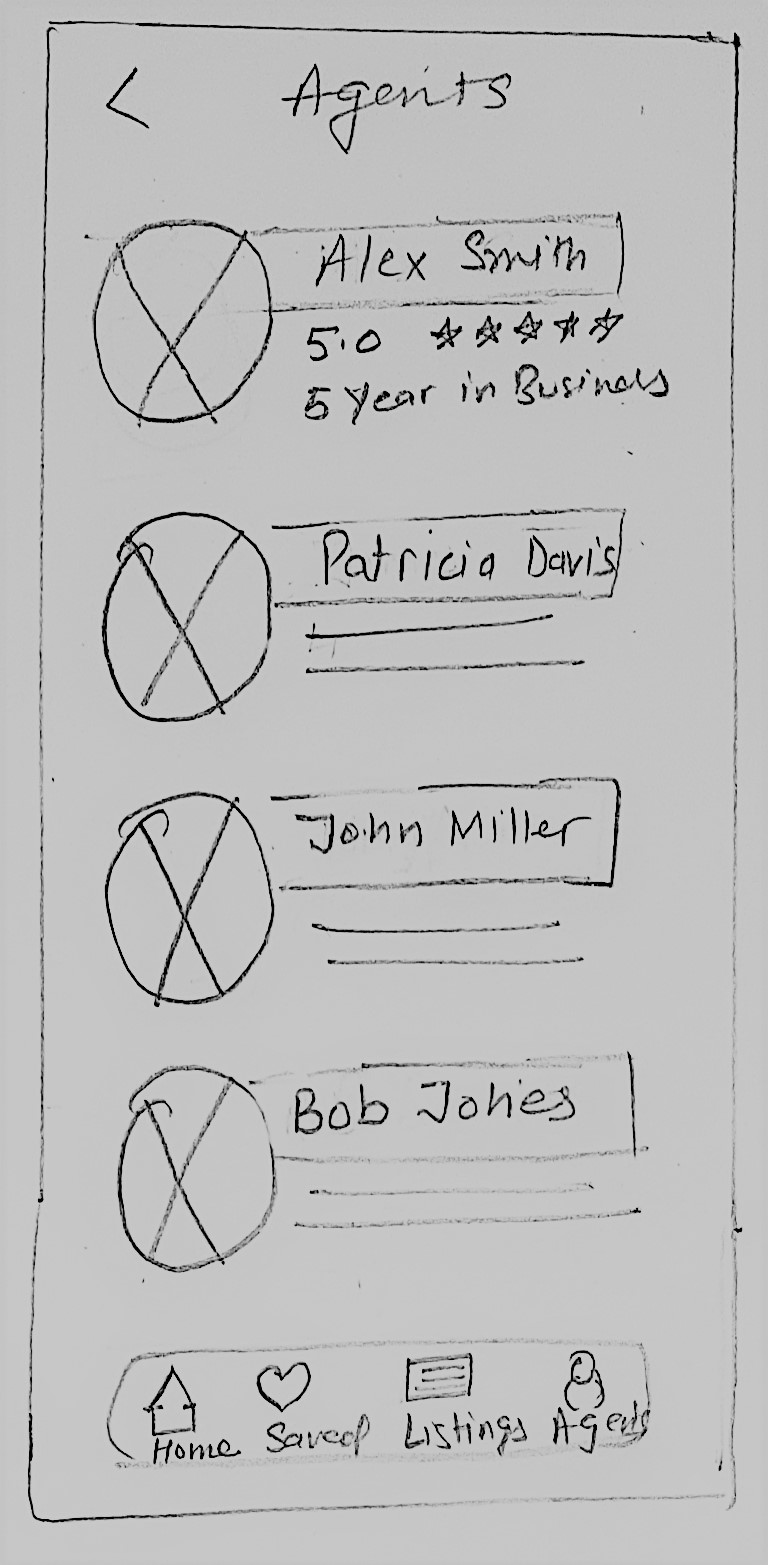 Agents
Alex Smith
5.0
5 Year in Business
Patricia Davis
John Miller
Bob Jones
Home Saved Listings Agents